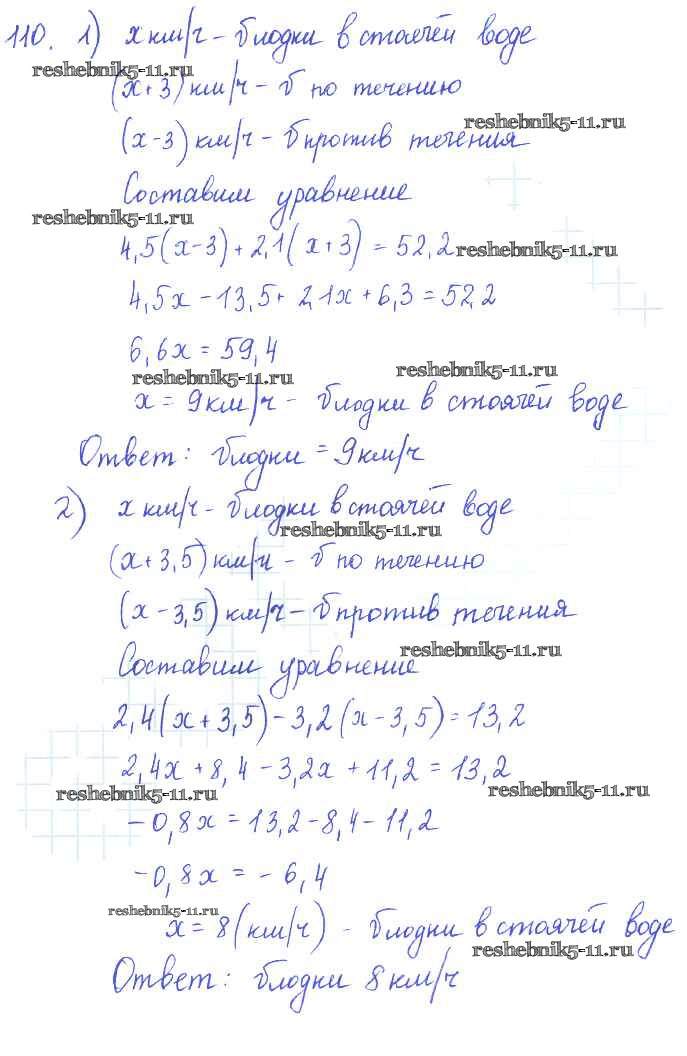 110. 1) x км/ч - v лодки в стоячей воде
reshebnik5-11.ru
(x+3) км/ч - v по течению
reshebnik5-11.ru
(x-3) км/ч - v против течения
Составим уравнение
reshebnik5-11.ru
4,5(x-3)+2,1(x+3)=52,2
reshebnik5-11.ru
4,5x-13,5+2,1x+6,3=52,2
6,6x=59,4
reshebnik5-11.ru
reshebnik5-11.ru
x=9км/ч - v лодки в стоячей воде
Ответ: v лодки = 9км/ч
2) x км/ч - v лодки в стоячей воде
reshebnik5-11.ru
(x+3,5) км/ч - v по течению
(x-3,5) км/ч - v против течения
reshebnik5-11.ru
Составим уравнение
2,4(x+3,5)-3,2(x-3,5)=13,2
2,4x+8,4-3,2x+11,2=13,2
reshebnik5-11.ru
reshebnik5-11.ru
-0,8x=13,2-8,4-11,2
-0,8x=-6,4
reshebnik5-11.ru
x=8(км/ч) - v лодки в стоячей воде
reshebnik5-11.ru
Ответ: v лодки 8км/ч